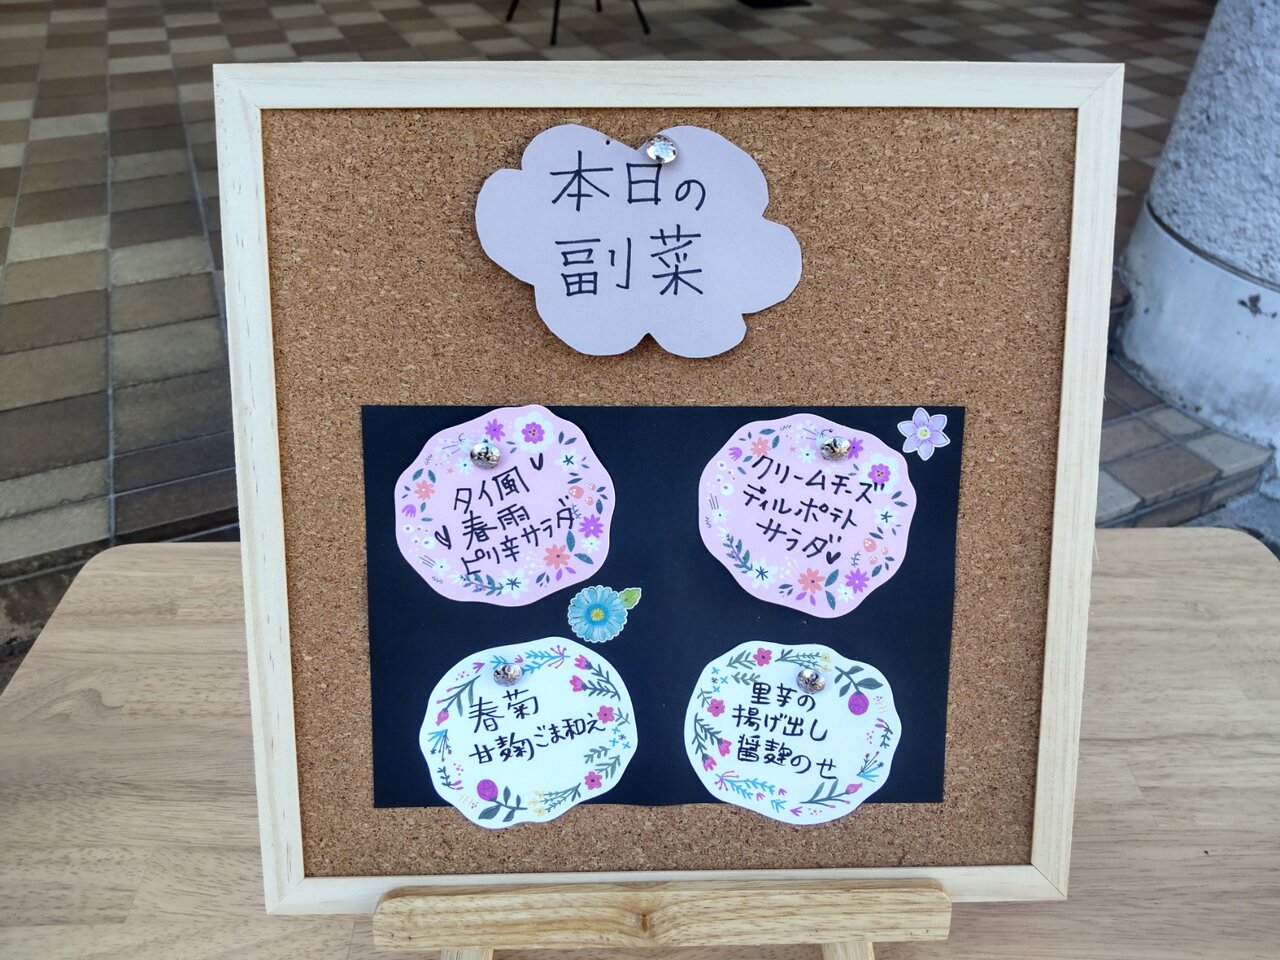 本日の
副菜
タイ風
春雨
ピリ辛サラダ
クリームチーズ
ディルポテト
サラダ
春菊
甘麹ごま和え
里芋の
揚げ出し
醤麹のせ